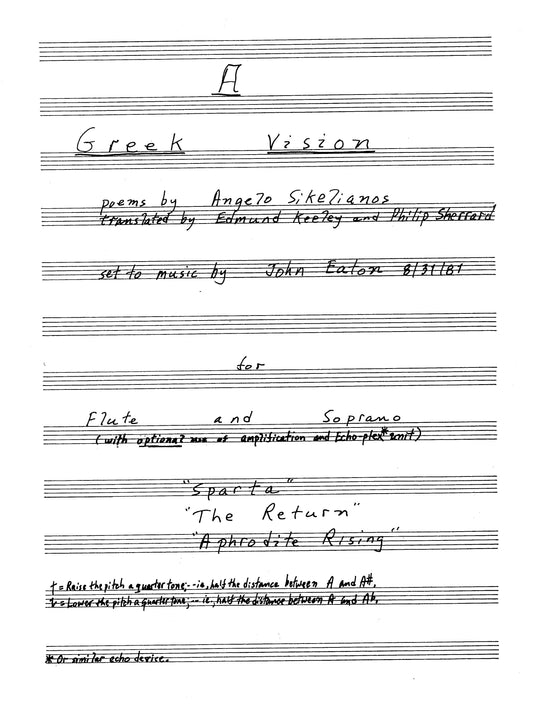 A
Greek Vision
poems by Angelo Sikelianos
translated by Edmund Keeley and Philip Sherrard
set to music by John Eaton 8/31/81
for
Flute and Soprano
(with optional use of amplification and Echo-plex* unit)
"Sparta"
"The Return"
"Aphrodite Rising"
= Raise the pitch a quarter tone; -- ie, half the distance between A and A#.
= Lower the pitch a quarter tone; -- ie., half the distance between A and Ab.
* Or similar echo device.